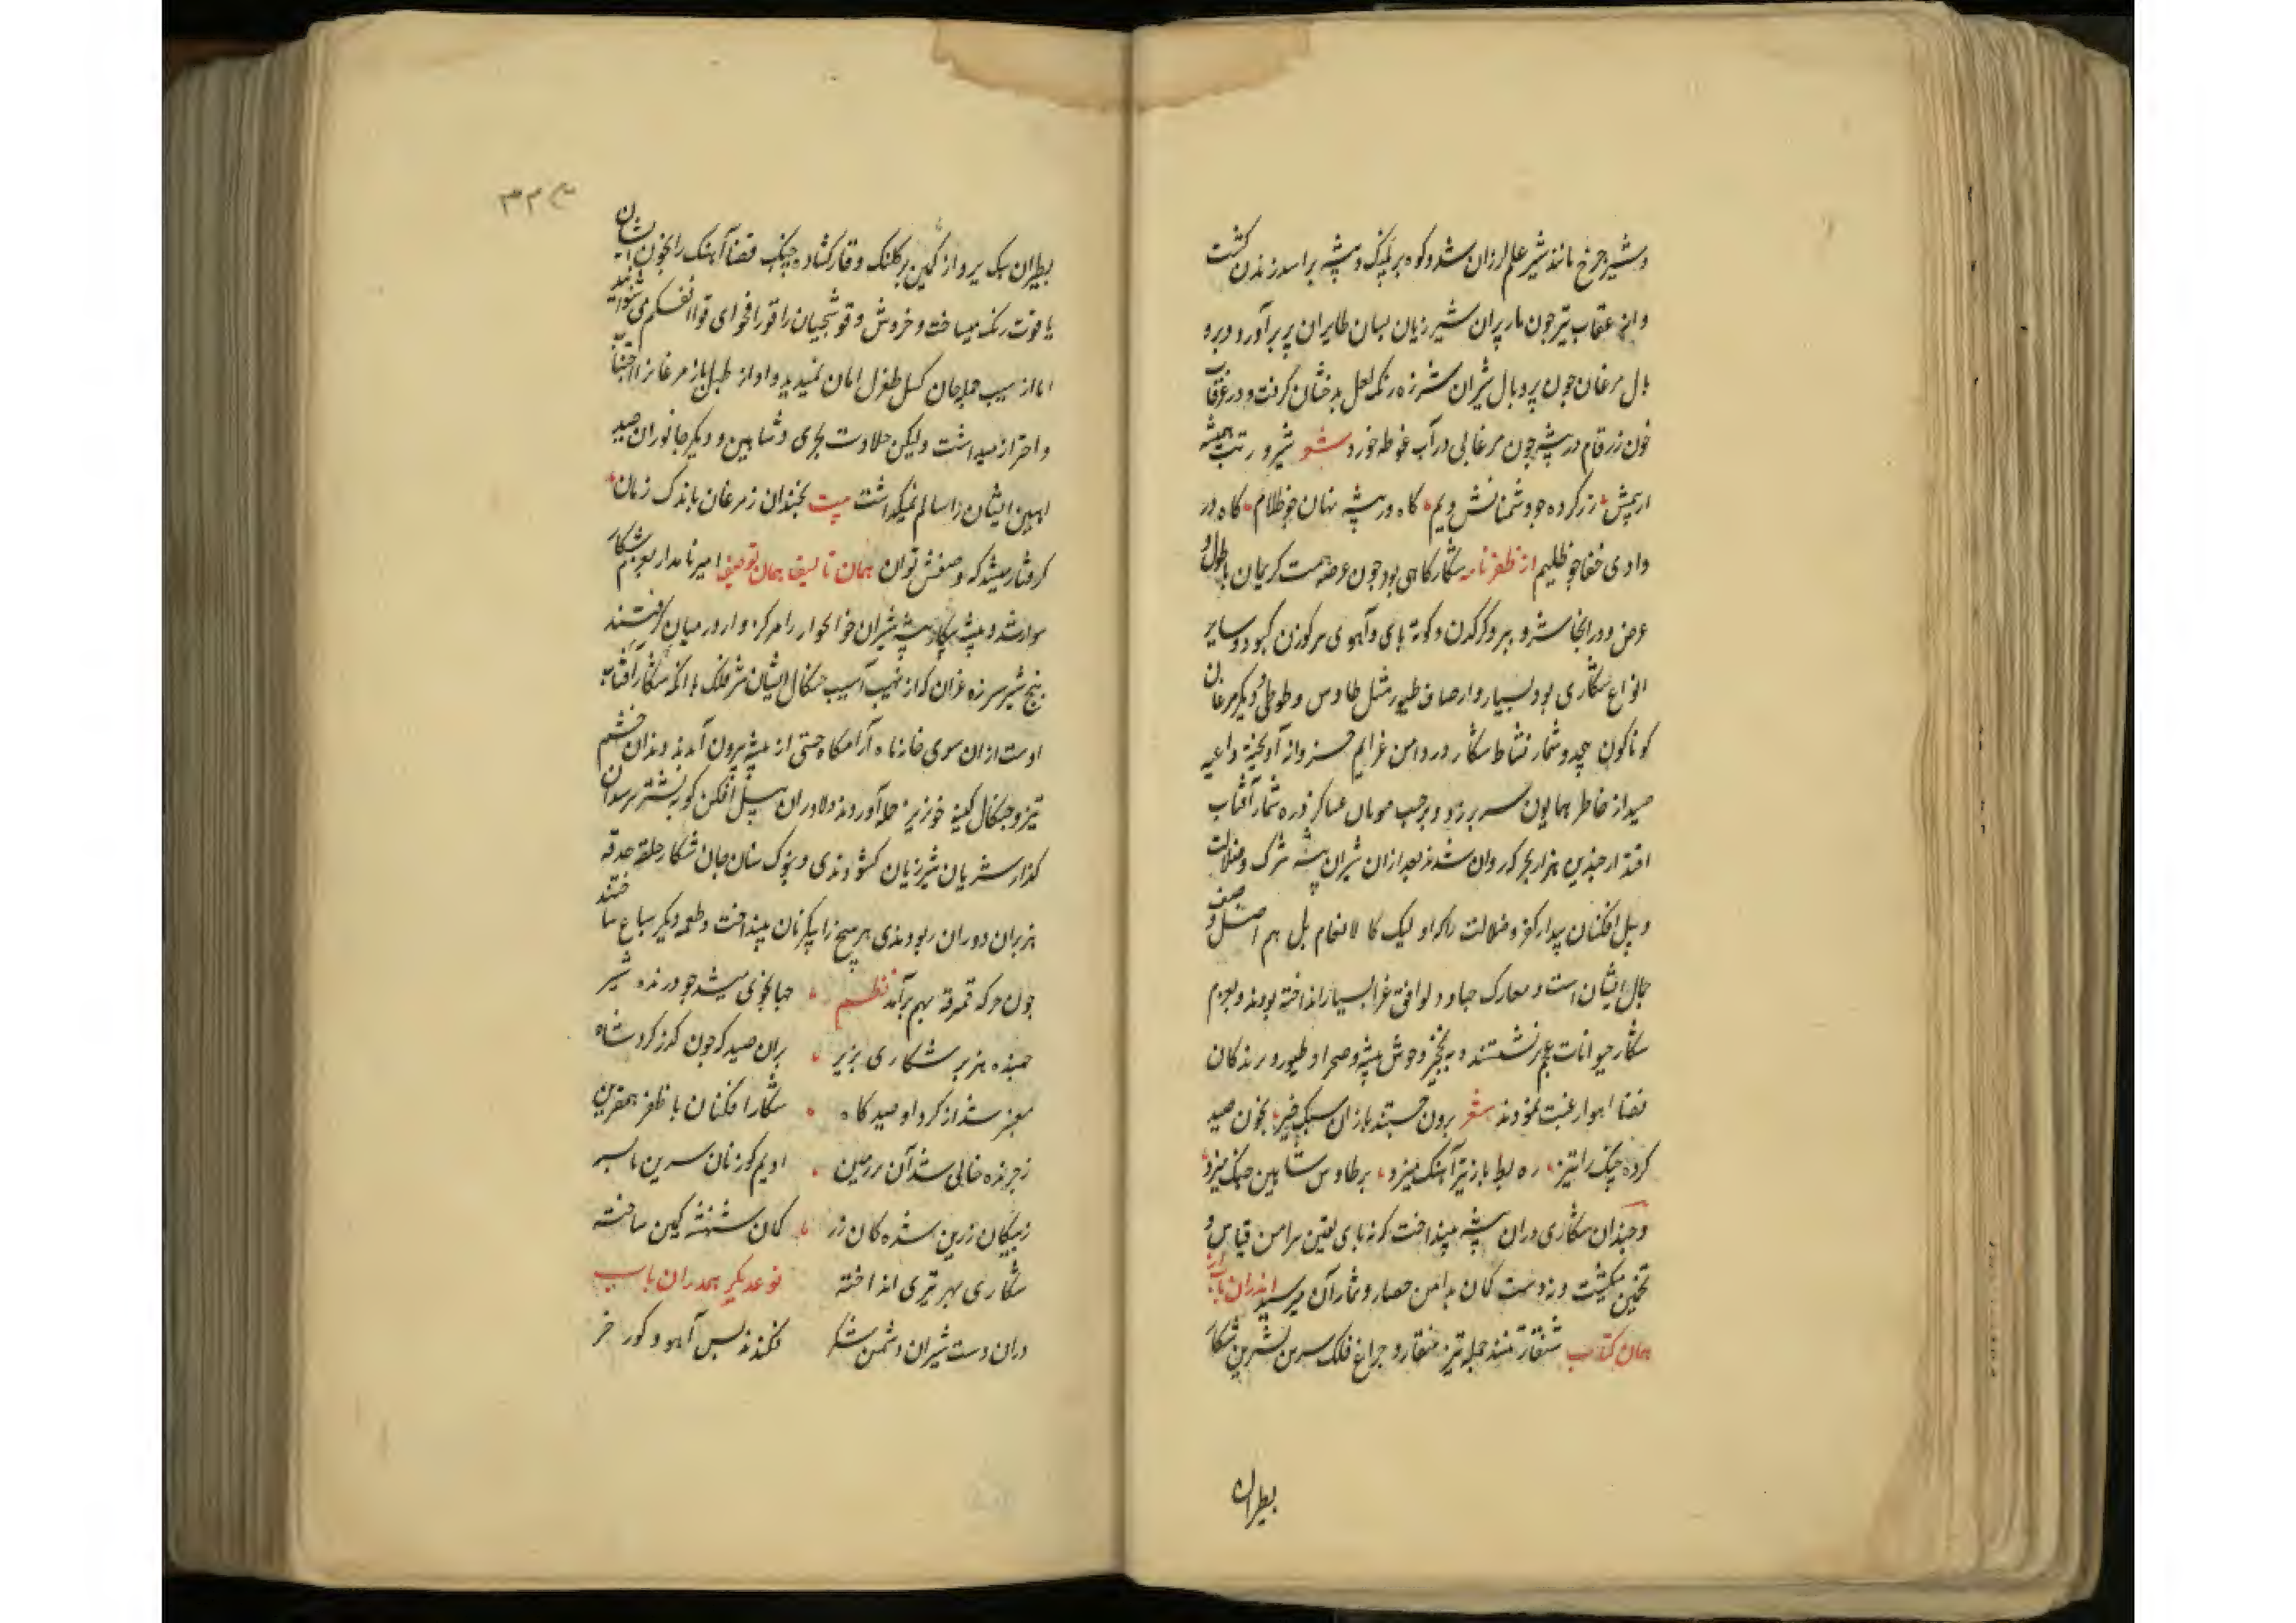 و شیر چرخ مانند شیر علم لرزان شد و کوه بر پلنک و بیشه بر اسد زندان کشت
و از عقاب تیر چون مار پران شیر زیان بسان طایران پر برآورد و برو
بال مرغان چون پر و بال شیران شرزه رنک لعل بدخشان کرفت و در غرقاب
خون زرقام در بیشه چون مرغابی در آب غوطه خورد شعر شیر و
کرده چو دشمنانش ویم کاه در بیشه نهان چو ظلام کاه در
وادی خفا چو ظلیم از ظفرنامه شکارکاهی بود چون عرصه همت کریمان با طول و
عرض و در انجا شیر و ببر و کرکدن و کوته پای و آهوی سر کوزن کبود و سایر
انواع شکاری بود بسیار و از اصناف طیور مثل طاوس و طوطی و دیکر مرغان
کوناکون بیحد و شمار نشاط شکار در دامن عزایم خسروانه آویخته داعیه
صید از خاطر همایون سر بر زد و بر حسب فرمان عساکر ذره شمار آفتاب
اقتدار چندین هزار بجرکه روان شدند بعد از ان شیران بیشه شرک و ضلالت
و پیل افکنان بیدار کفر و ضلالت را که اولیک کالانعام بل هم اضل وصف
حال ایشان است در معارک جهاد و لوافق غزا بسیار انداخته بودند و بعزم
شکار حیوانات عجم برنشستند و به نخجیر وحوش بیشه و صحرا و طیور و پرندکان
فضا اهوا رغبت نمودند شعر برون جستند بازان سبک خیز بخون صید
کرده چنک را تیز ره بط باز تیز آهنک میزد بر طاوس شاهین چنک میزد
و چندان شکاری دران بیشه بینداخت که نه پای یقین پیرامن قیاس و
تخمین میکشت و نه دست کمان بدامن حصار و شمار آن میرسید اندران باب از
همان کتاب شنقار تند حمله تیز منقار و چراغ فلک سرین نسرین شکار
بطیران
بطیران سبک پرواز کمین بر کلنک و قاز کشاده چنک قضا آهنک را بخون ایشان
یاقوت رنک میساخت و خروش و قوشجیان را قورا فحوای قوا انفسکم می شنوانید
اما از سیب حمله جان کسل طغرل امان نمیدید و اواز طبل باز مرغانرا اجتناب
و احتراز میداشت ولیکن جلادت بحری و شاهین و دیکر جانوران صید
ایشان را سالم نمیکذاشت بیت بچندان ز مرغان باندک زمان
کرفتار میشد که وصفش توان همان تالیف همان توصیف امیر نامدار بعزم شکار
سوار شد و بیشه شیران خونخوار را مرکز وار در میان کرفتند
پنج شیر شرزه غران که از نهیب آسیب جنکال ایشان شیر فلک با انکه شکار آفتاب
اوست از ان سوی خانه ماه آرامکاه جستی از بیشه بیرون آمدند و دندان خشم
تیز و جنکال کینه خونریز حمله آوردند دلاوران پیل افکن که به نشتر
کذار شریان شیر زیان کشودندی و بنوک سنان جان شکار حلقه حدقه
هزبران دوران ربودندی هر پنج را بپیکر نان بینداخت و طعمه دیکر سباع ساختند
چون جرکه قمرقه بهم برآمد نظم جهانجوی میشد چو درنده شیر
جهنده هزبر شکاری بزیر بران صید کر چون کذر کرد شاه
معنبر شد از کرد او صیدکاه شکار افکنان با ظفر همقرین
ز چرنده خالی شد آن سرزمین ادیم کوزنان سرین تا بسر
ز پیکان زرین شده کان زر کمان شهنشه کمین ساخته
شکاری بهر تیری انداخته نوعدیکر همدران باب
دران دست شیران دشمن شکر فکندند بس آهو و کور خر